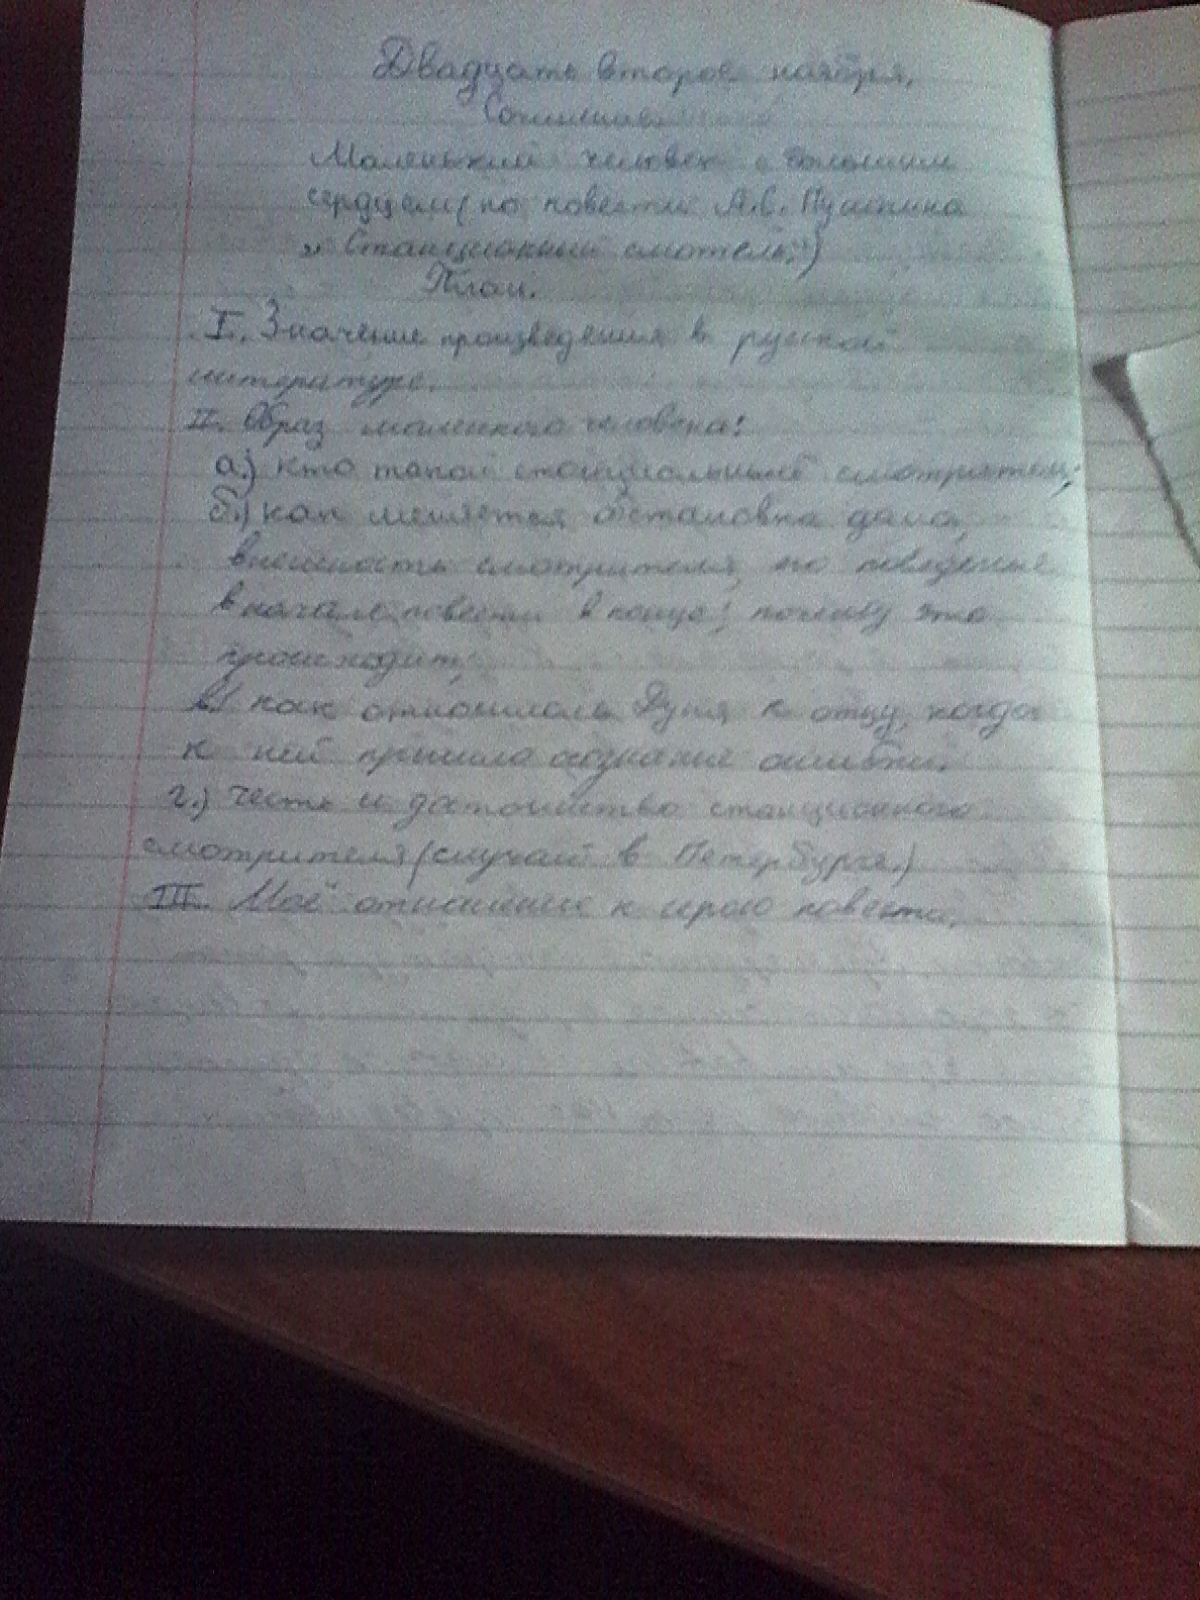 Двадцать второе ноября.
Сочинение
Маленький человек с большим
сердцем (по повести А.С. Пушкина
"Станционный смотель")
План.
I. Значение произведения в русской
литературе.
II. Образ маленького человека:
а.) кто такой станциальный смотритель;
б.) как меняется обстановка дома,
внешность смотрителя, его поведение
в начале повести в конце; почему это
происходит;
в.) как относилась Дуня к отцу, когда
к ней пришло осознание ошибки.
г.) честь и достоинство станционного
смотрителя (случай в Петербурге.)
III. Моё отношение к герою повести.